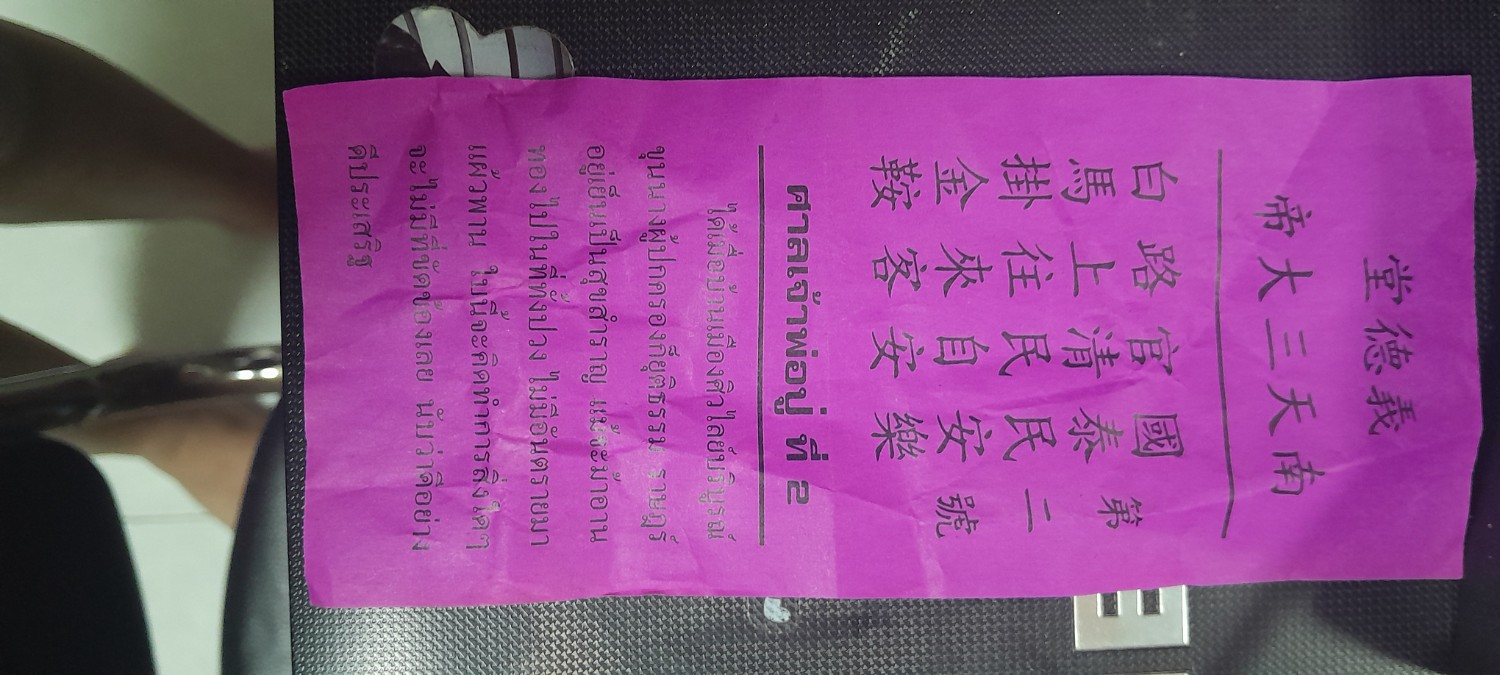 義德堂
南天三大帝
第二號
國泰民安樂
官清民自安
路上往來客
白馬掛金鞍
ศาลเจ้าพ่อปู่ ที่ 2
ได้เมื่อบ้านเมืองศิวิไลย์บริบูรณ์
ขุนนางผู้ปกครองก็ยุติธรรม ราษฎร์
อยู่เย็นเป็นสุขสำราญ แม้จะม้าอาน
ทองไปในที่ทั้งปวง ไม่มีอันตรายมา
แผ้วพาน ใบนี้จะคิดทำการสิ่งใดๆ
จะไม่มีที่ขัดข้องเลย นับว่าดีอย่าง
ดีประเสริฐ